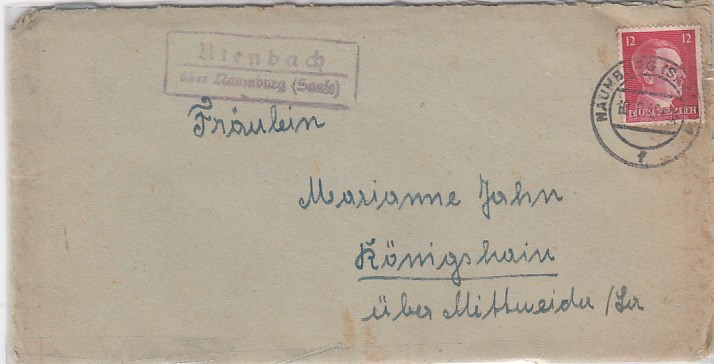 Utenbach
über Naumburg (Saale)
12 12
NAUMBURG (SAALE)
f
DEUTSCHES REICH
Fräulein
Marianne Jahn
Königshain
über Mittweida /Sa